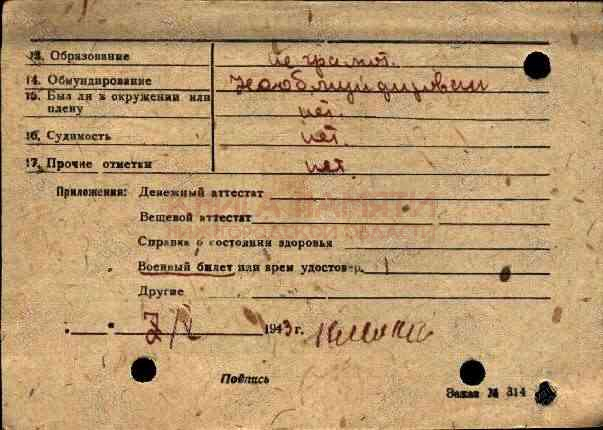 13. Образование не грамот.
14. Обмундирование Необмундирован
15. Был ли в окружении или плену нет.
16. Судимость нет.
17. Прочие отметки нет
Приложения: Денежный аттестат
Вещевой аттестат
Справка о состоянии здоровья
Военный билет или врем удостовер. 1
Другие
1943 г.
Подпись
Заказ № 314